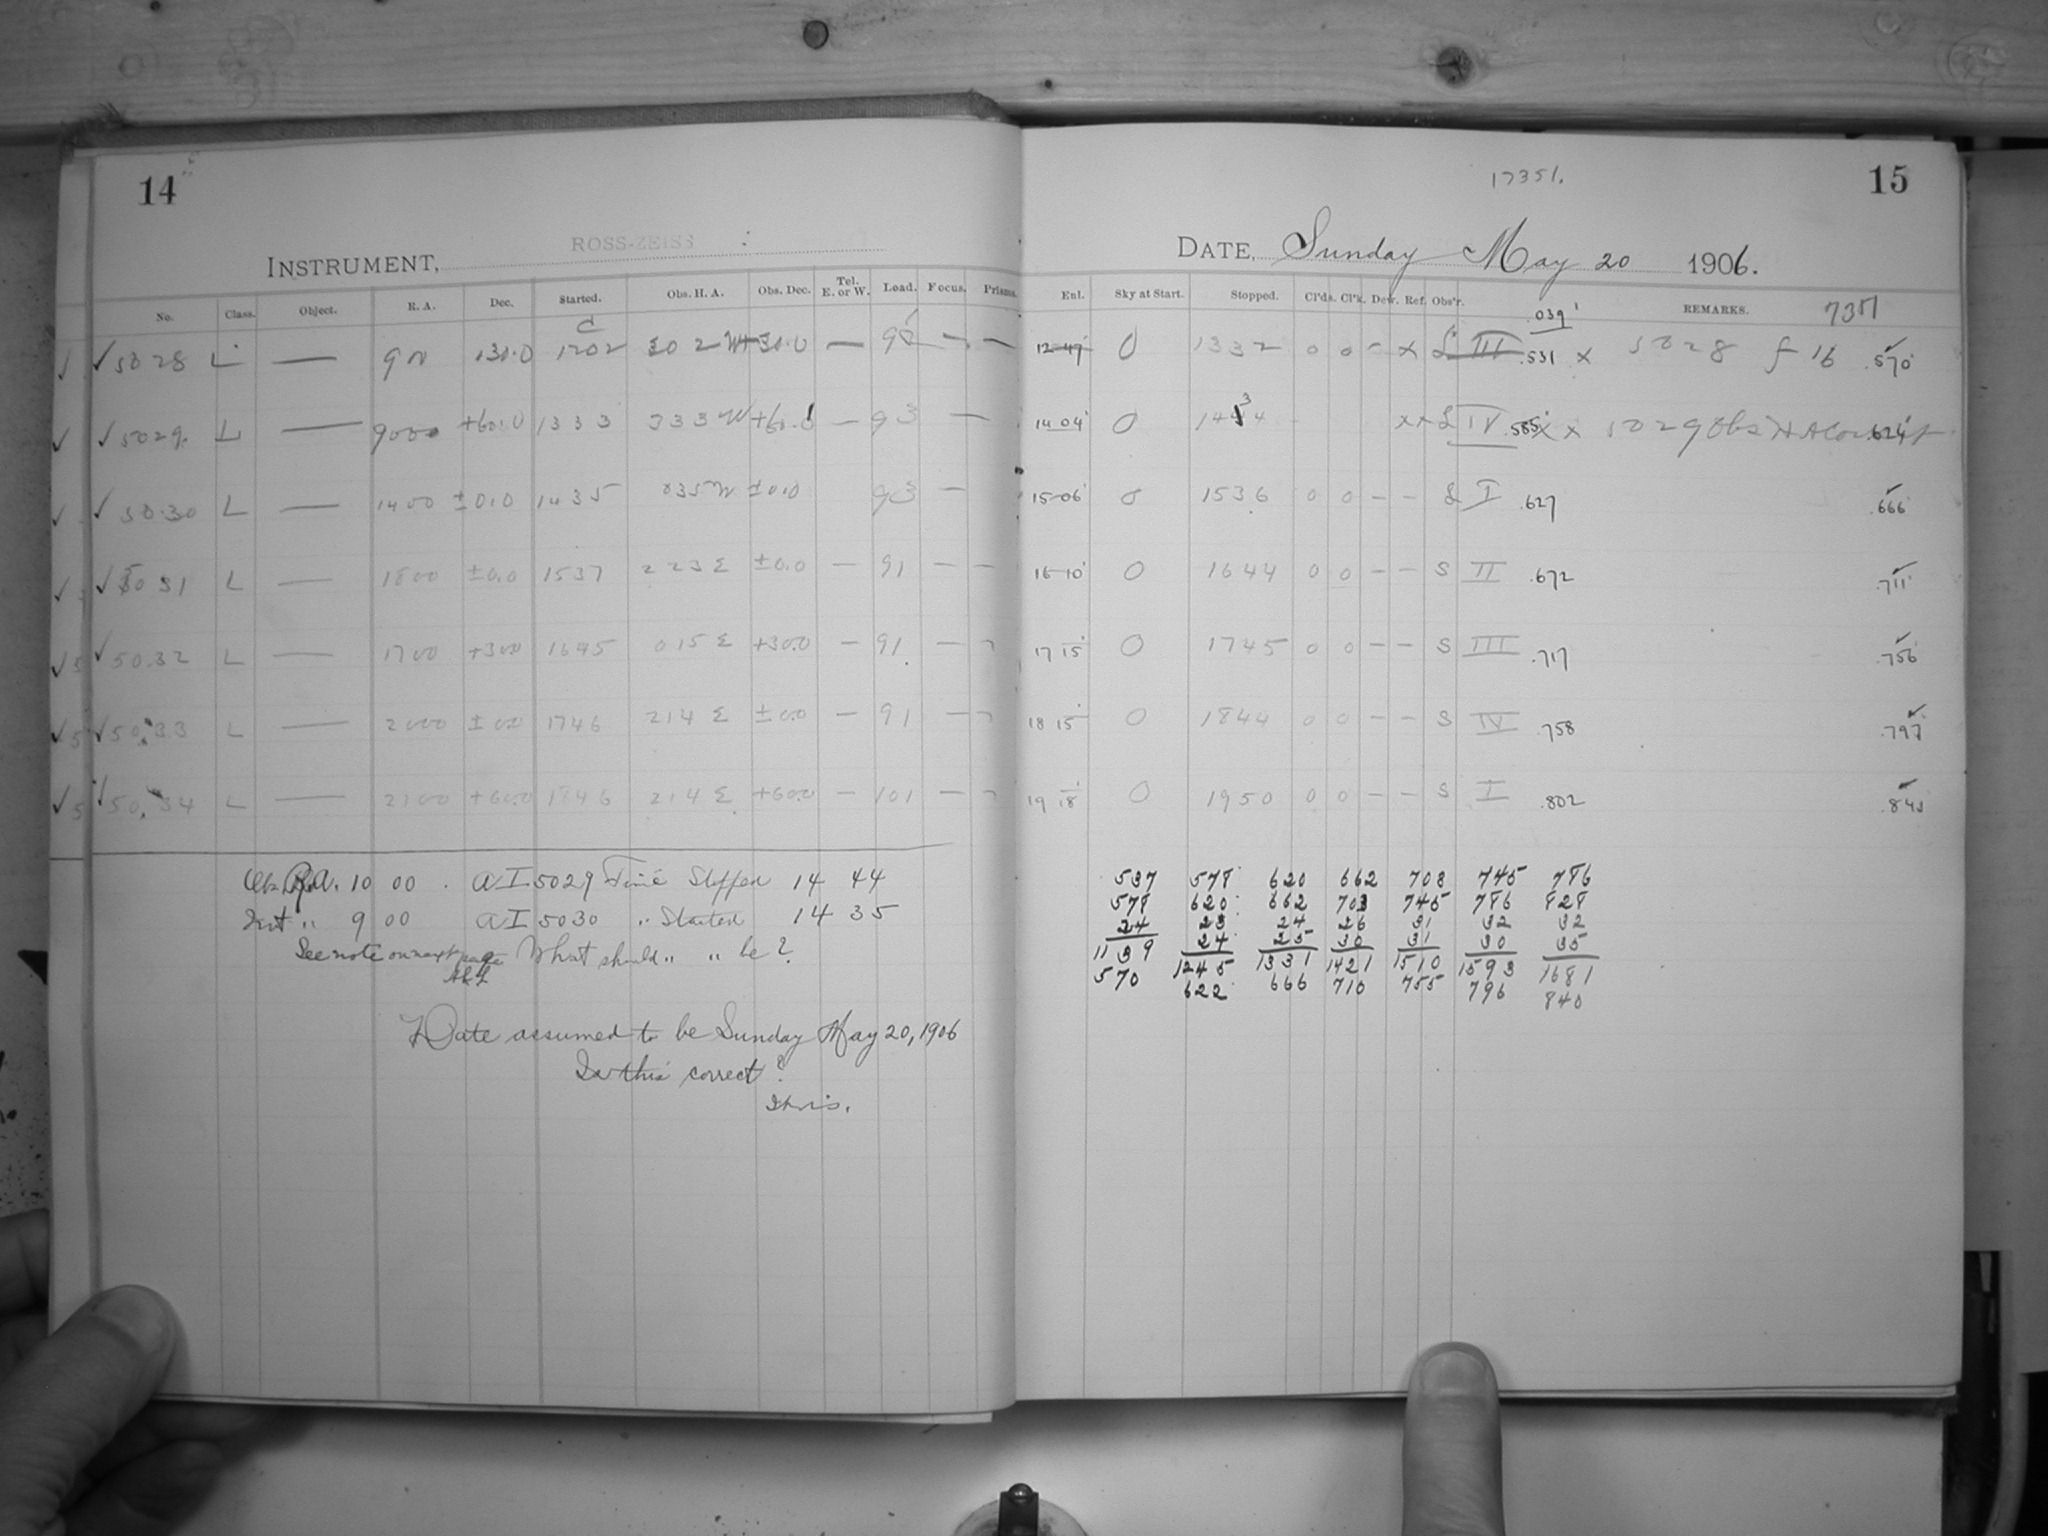 14
ROSS-ZEISS :
INSTRUMENT,
No. Class. Object. R. A. Dec. Started. Obs. H. A. Obs. Dec. Tel. E. or W. Load. Focus. Prisms.
✓ ✓ 5028 L — 9 00 +30.0 1202 302 W +30.0 — 92 — —
✓ ✓ 5029 L — 9000 +60.0 1333 333 W +60.1 — 93 —
✓ ✓ 5030 L — 1400 ±0.0 1435 035 W ±0.0 93 —
✓ ✓ 5031 L — 1800 ±0.0 1537 223 E ±0.0 — 91 — —
✓ 5 ✓ 50.32 L — 1700 +300 1645 015 E +30.0 — 91 — —
✓ 5 ✓ 50.33 L — 2000 ±00 1746 214 E ±0.0 — 91 — —
✓ 5 ✓ 50.34 L — 2100 +60.0 1846 214 E +60.0 — 101 — —
Obs R.A. 10 00 . A I 5029 Time Stopped 14 44
Inst " 9 00 A I 5030 " Started 14 35
See note on next page What should " " be?
Date assumed to be Sunday May 20, 1906
Is this correct?
15
17351.
DATE, Sunday May 20 1906.
Enl. Sky at Start. Stopped. Cl'ds. Cl'k. Dew. Ref. Obs'r. REMARKS. 7351
.039
12 47 0 1332 0 0 - x L III .531 x 5028 f 16 .570
14 04 0 14 3 4 x x L IV .585 x x 5029 Obs HA .624
15 06 0 1536 0 0 - - L I .627 .666
16 10 0 1644 0 0 - - S II .672 .711
17 15 0 1745 0 0 - - S III .717 .756
18 15 0 1844 0 0 - - S IV .758 .797
19 18 0 1950 0 0 - - S I .802 .841
537 578 620 662 703 745 786
578 620 662 703 745 786 828
24 23 24 26 31 32 32
24 25 30 31 30 35
1139 1245 1331 1421 1510 1593 1681
570 622 666 710 755 796 840